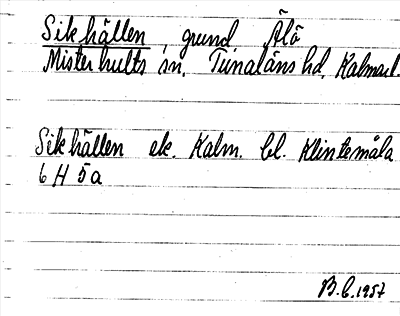 Sikhällen, grund, Älö
Misterhults sn. Tunaläns hd, Kalmar l.
Sikhällen ek. Kalm. bl. Klintemåla
6 H 5a
B.C. 1957